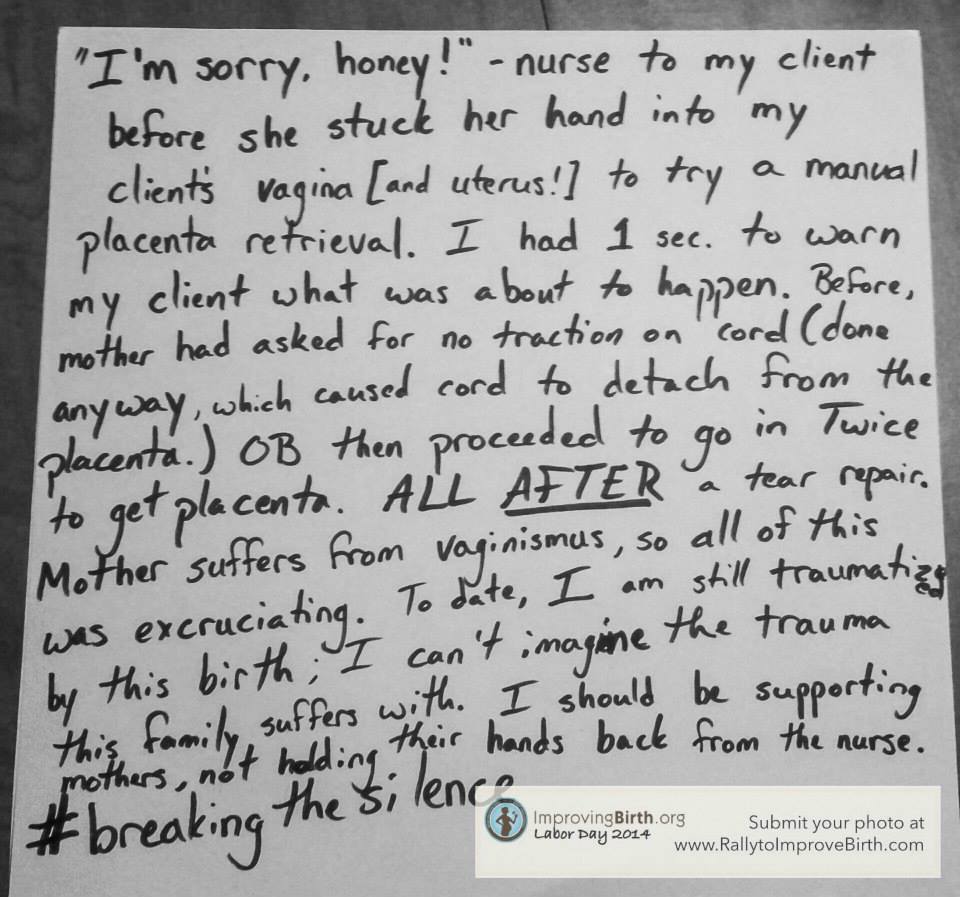 "I'm sorry, honey!" - nurse to my client
before she stuck her hand into my
client's vagina [and uterus!] to try a manual
placenta retrieval. I had 1 sec. to warn
my client what was about to happen. Before,
mother had asked for no traction on cord (done
anyway, which caused cord to detach from the
placenta.) OB then proceeded to go in Twice
to get placenta. ALL AFTER a tear repair.
Mother suffers from vaginismus, so all of this
was excruciating. To date, I am still traumatized
by this birth; I can't imagine the trauma
this family suffers with. I should be supporting
mothers, not holding their hands back from the nurse.
#breaking the silence
ImprovingBirth.org
Labor Day 2014
Submit your photo at
www.RallytoImproveBirth.com